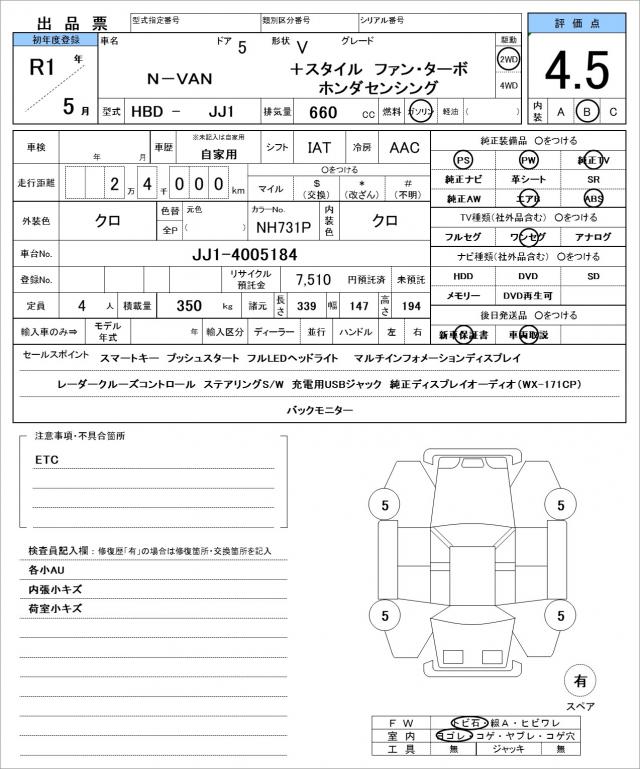 出品票 型式指定番号 類別区分番号 シリアル番号 評価点
初年度登録 車名 ドア 5 形状 V グレード 駆動
R1 年 N－VAN ＋スタイル ファン・ターボ 2WD 4.5
5 月 ホンダセンシング 4WD
型式 HBD － JJ1 排気量 660 cc 燃料 ガソリン 軽油 ( ) 内装 A B C
車検 年 月 車歴 ※未記入は自家用 自家用 シフト IAT 冷房 AAC 純正装備品 〇をつける
PS PW 純正TV
走行距離 2 万 4 千 0 0 0 km 〇をつける
マイル $ (交換) * (改ざん) # (不明) 純正ナビ 革シート SR
純正AW エアB ABS
外装色 クロ 色替 元色 全P ( ) カラーNo. NH731P 内装色 クロ TV種類(社外品含む) 〇をつける
フルセグ ワンセグ アナログ
車台No. JJ1-4005184 ナビ種類(社外品含む) 〇をつける
登録No. リサイクル預託金 7,510 円預託済 未預託 HDD DVD SD
定員 4 人 積載量 350 kg 諸元 長さ 339 幅 147 高さ 194 メモリー DVD再生可
後日発送品 〇をつける
輸入車のみ⇒ モデル年式 年 輸入区分 ディーラー 並行 ハンドル 左 右 新車保証書 車両取説
セールスポイント スマートキー プッシュスタート フルLEDヘッドライト マルチインフォメーションディスプレイ
レーダークルーズコントロール ステアリングS/W 充電用USBジャック 純正ディスプレイオーディオ(WX-171CP)
バックモニター
注意事項・不具合箇所
ETC
検査員記入欄：修復歴「有」の場合は修復箇所・交換箇所を記入
各小AU
内張小キズ
荷室小キズ
5 5
5 5
有
スペア
FW トビ石・線A・ヒビワレ
室内 ヨゴレ・コゲ・ヤブレ・コゲ穴
工具 無 ジャッキ 無